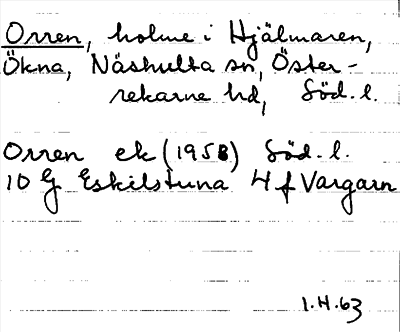 Orren, holme i Hjälmaren,
Ökna, Näshulta sn, Öster-
rekarne hd, Söd. l.
Orren ek (1958) Söd. l.
10 G Eskilstuna 4 f Vargarn
1.4.63